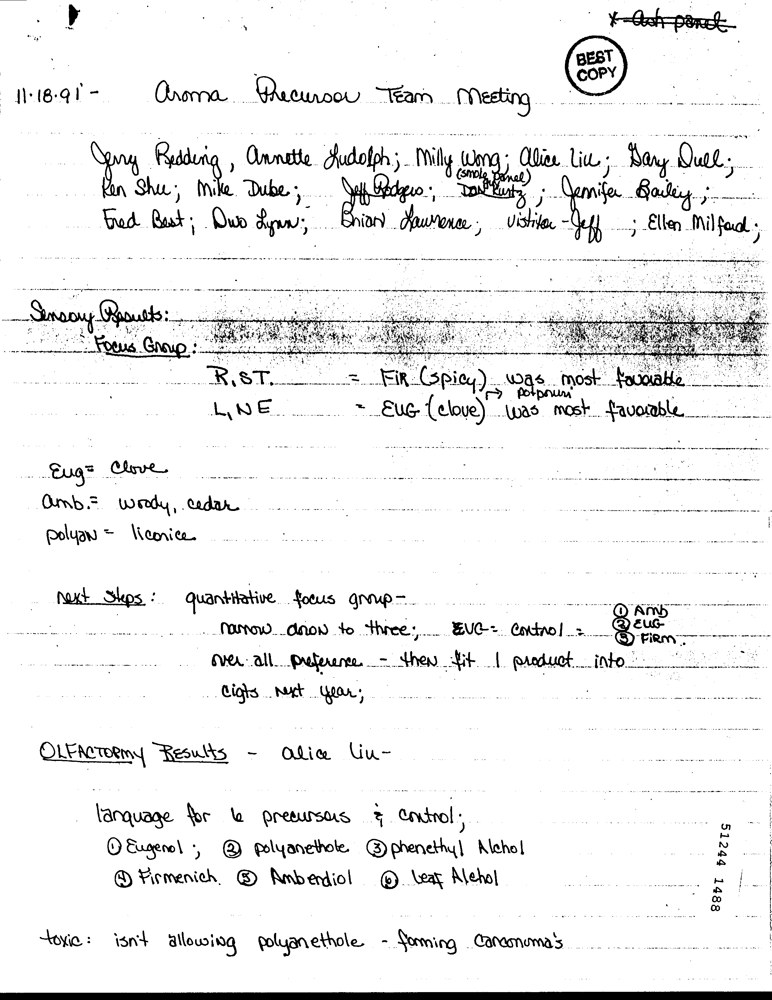 * Ash panel
BEST
COPY
11·18·91 - Aroma Precursor Team Meeting
Jerry Redding, Annette Ludolph; Milly Wong; Alice Liu; Gary Duell;
(smoke panel)
Ken Shu; Mike Dube; Jeff Rodgers; ; Jennifer Bailey;
Fred Best; Duo Lynn; Brian Lawrence; visitor - Jeff ; Ellen Milford;
Sensory Results:
Focus Group:
R, ST. = FIR (spicy) was most favorable
→ potpourri
L, NE = EUG (clove) was most favorable
Eug = Clove
Amb. = woody, cedar
polyan = licorice
Next Steps: quantitative focus group -
① Amb
narrow down to three; EUG = control = ② EUG
③ Firm.
over all preference - then fit 1 product into
cigts next year;
OLFACTORMY RESULTS - Alice Liu -
language for 6 precursors & control;
① Eugenol; ② polyanethole ③ phenethyl Alchol
④ Firmenich. ⑤ Amberdiol ⑥ Leaf Alchol
toxic: isn't allowing polyanethole - forming carconoma's
51244 1488